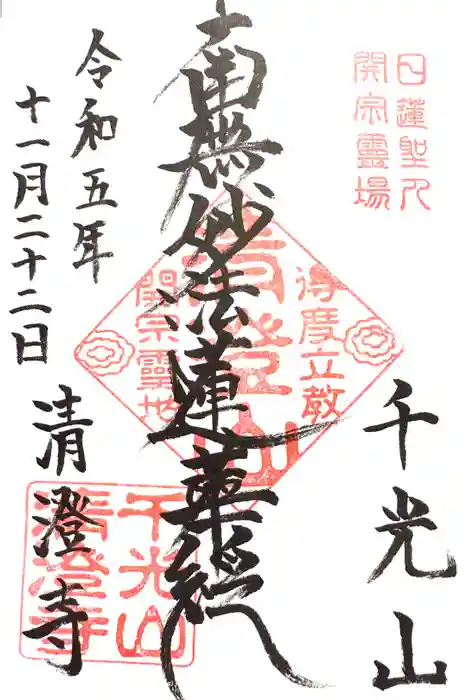 日蓮聖人
開宗霊場
千光山
南無妙法蓮華経
得度立教
清澄山
開宗霊地
令和五年
十一月二十二日
清澄寺
千光山
清澄寺